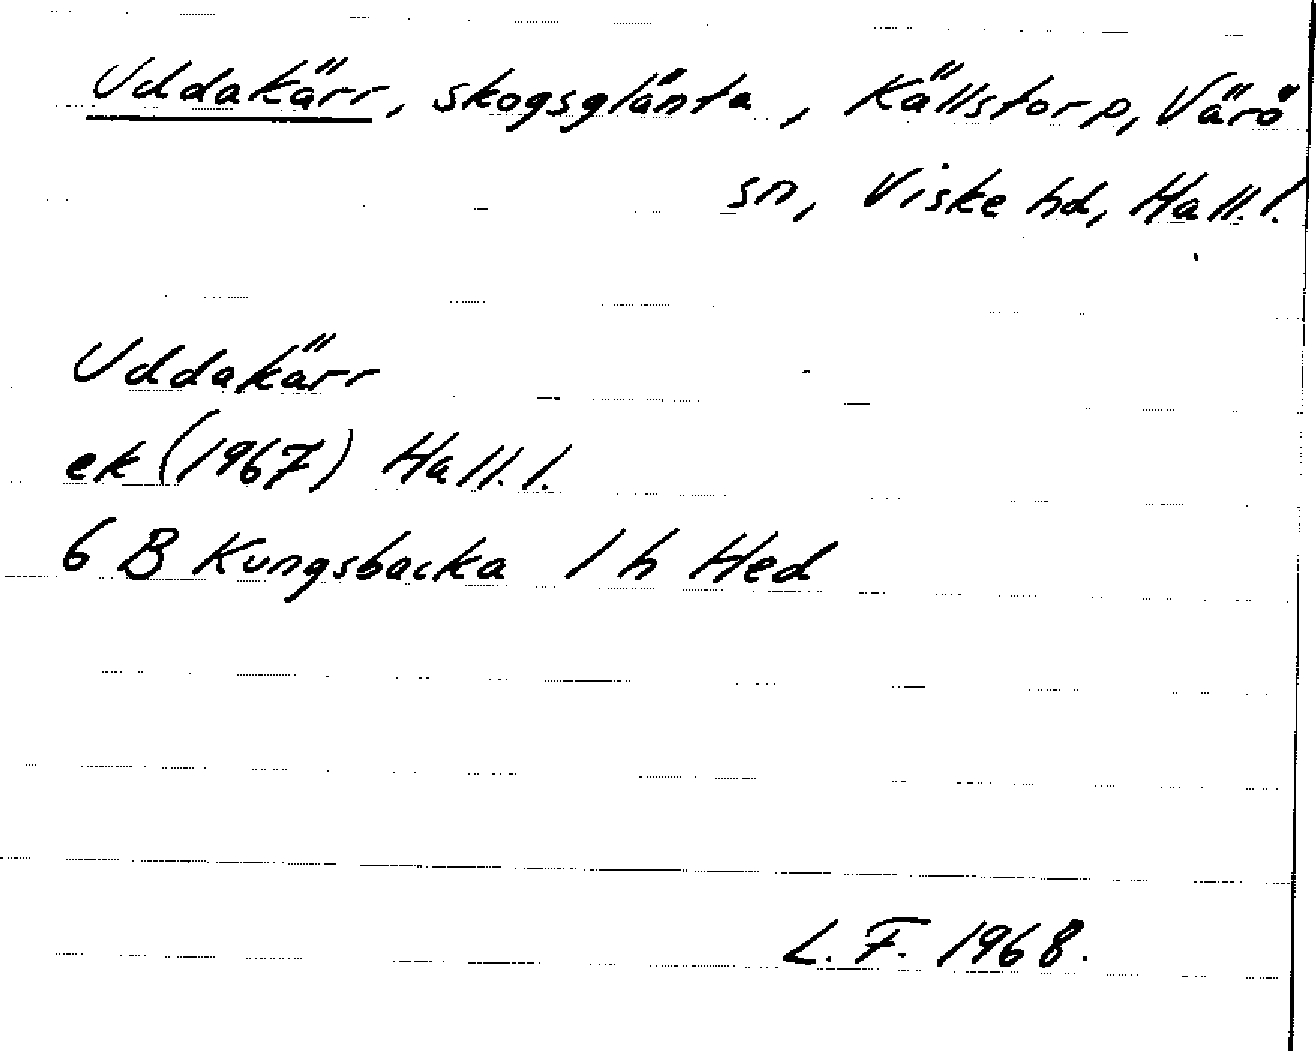 Uddakärr, skogsglänta, Källstorp, Värö
sn, Viske hd, Hall.l.
Uddakärr
ek (1967) Hall.l.
6 B Kungsbacka 1 h Hed
L.F. 1968.